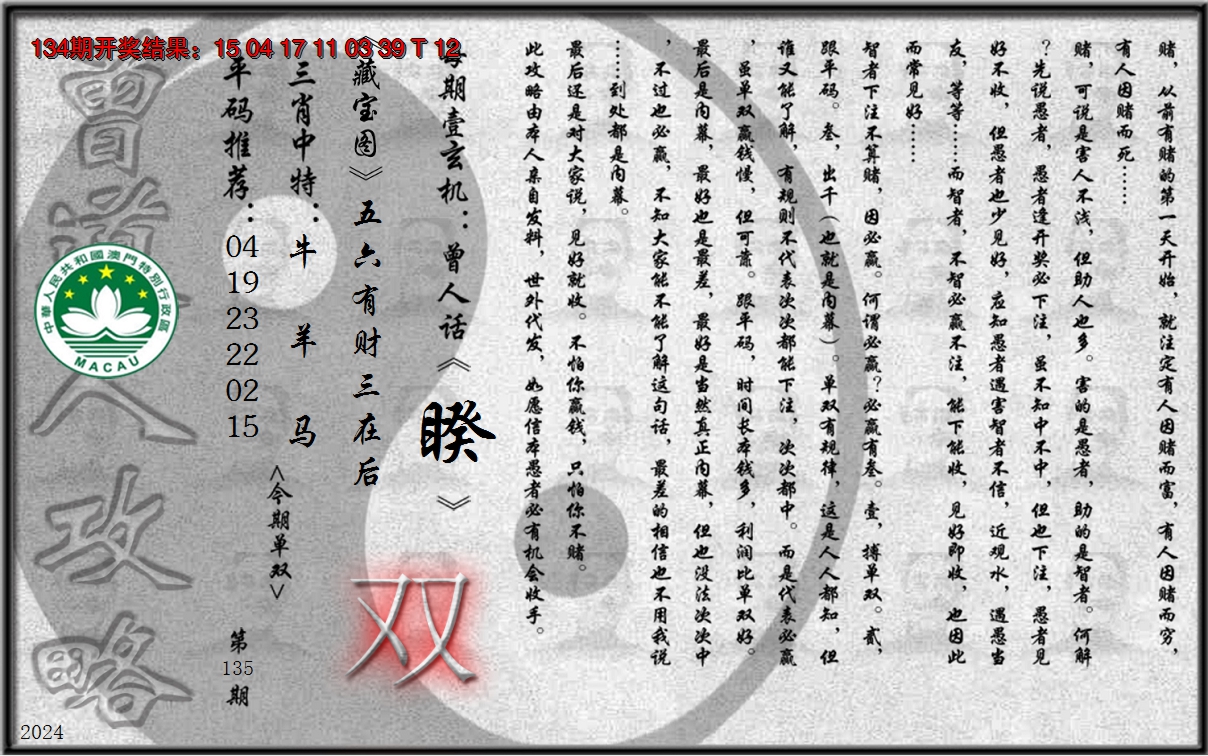 134期开奖结果：15 04 17 11 03 39 T 12
赌，从前有赌的第一天开始，就注定有人因赌而富，有人因赌而穷，
有人因赌而死……
赌，可说是害人不浅，但助人也多。害的是愚者，助的是智者。何解
？先说愚者，愚者逢开奖必下注，虽不知中不中，但也下注，愚者见
好不收，但愚者也少见好，应知愚者遇害智者不信，近观水，遇愚当
友，等等……而智者，不智必赢不注，能下能收，见好即收，也因此
而常见好……
智者下注不算赌，因必赢。何谓必赢？必赢有叁。壹，搏单双。贰，
跟平码。叁，出千（也就是内幕）。单双有规律，这是人人都知，但
谁又能了解，有规则不代表次次都能下注，次次都中。而是代表必赢
，虽单双赢钱慢，但可靠。跟平码，时间长本钱多，利润比单双好。
最后是内幕，最好也是最差，最好是当然真正内幕，但也没法次次中
，不过也必赢，不知大家能不能了解这句话，最差的相信也不用我说
……到处都是内幕。
最后还是对大家说，见好就收。不怕你赢钱，只怕你不赌。
此攻略由本人亲自发料，世外代发，如愿信本愚者必有机会收手。
每期壹玄机：曾人话《睽》
《藏宝图》五六有财三在后
双
三肖中特：牛 羊 马
<今期单双>
平码推荐：04 19 23 22 02 15
第135期
曾道人攻略
中華人民共和國澳門特別行政區
MACAU
2024